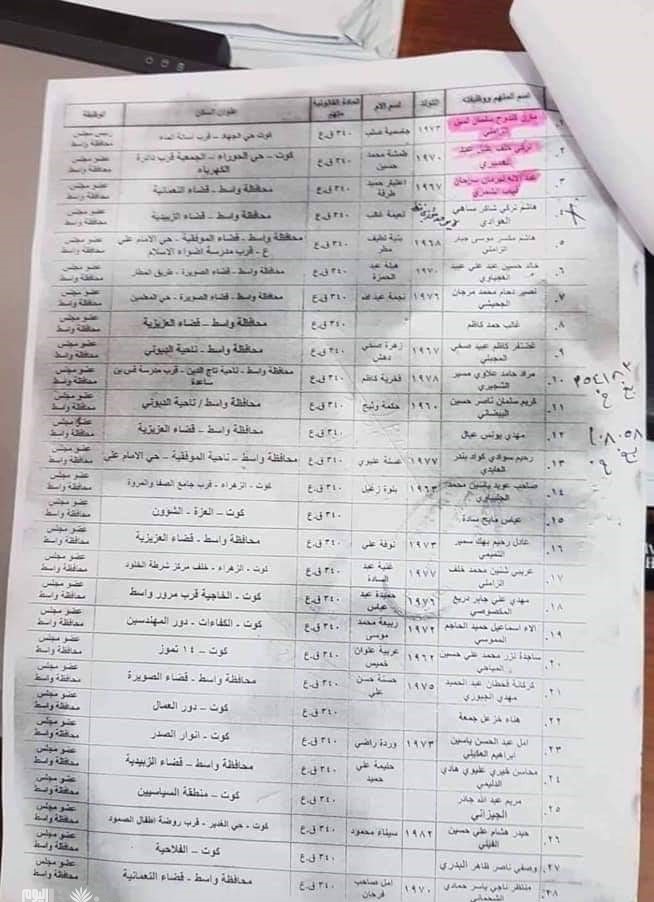 اسم المتهم ووظيفته | التولد | اسم الام | المادة القانونية | عنوان السكن | الوظيفة
١. مازن كندوح سلمان الزاملي | ١٩٧٣ | جاسمية | ٣٤٠ ق.ع | كوت حي الجهاد - قرب اسالة الماء | رئيس مجلس محافظة واسط
٢. تركي خلف عبد | ١٩٧٠ | محمد حسين | ٣٤٠ ق.ع | كوت - حي الحوراء - الجمعية قرب دائرة الكهرباء | عضو مجلس محافظة واسط
٣. عبد الاله الشمري | ١٩٦٧ | حميد | ٣٤٠ ق.ع | محافظة واسط - قضاء النعمانية | عضو مجلس محافظة واسط
٤. هاشم تركي شاكر العوادي | نعيمة | ٣٤٠ ق.ع | محافظة واسط - قضاء الزبيدية | عضو مجلس محافظة واسط
٥. هاشم موسى جبار الزاملي | ١٩٦٨ | لطيف | ٣٤٠ ق.ع | محافظة واسط - قضاء الموفقية - حي الامام علي ع - قرب مدرسة اضواء الاسلام | عضو مجلس محافظة واسط
٦. خالد حسين عبد علي عبيد | ١٩٧٠ | عبد الحمزة | ٣٤٠ ق.ع | محافظة واسط - قضاء الصويرة - طريق المطار | عضو مجلس محافظة واسط
٧. محمد مرجان | ١٩٧٦ | نجمة عبد الله | ٣٤٠ ق.ع | محافظة واسط - قضاء الصويرة - حي المعلمين | عضو مجلس محافظة واسط
٨. غالب حمد كاظم | ٣٤٠ ق.ع | محافظة واسط - قضاء العزيزية | عضو مجلس محافظة واسط
٩. غضنفر كاظم عبيد | ١٩٦٧ | زهرة | ٣٤٠ ق.ع | محافظة واسط - ناحية الدبوني | عضو مجلس محافظة واسط
١٠. حامد علاوي | ١٩٧٨ | فخرية كاظم | ٣٤٠ ق.ع | محافظة واسط - ناحية تاج الدين - قرب مدرسة قس بن ساعدة | عضو مجلس محافظة واسط
١١. كريم سلمان ناصر حسين | ١٩٦٠ | ٣٤٠ ق.ع | محافظة واسط / ناحية الدبوني | عضو مجلس محافظة واسط
١٢. مهدي يونس عيال | ٣٤٠ ق.ع | محافظة واسط - قضاء العزيزية | عضو مجلس محافظة واسط
١٣. رحيم بندر العابدي | ١٩٧٧ | ٣٤٠ ق.ع | محافظة واسط - ناحية الموفقية - حي الامام علي | عضو مجلس محافظة واسط
١٤. صاحب عويد ياسين محمد | ١٩٦٣ | ٣٤٠ ق.ع | كوت - الزهراء - قرب جامع الصفا والمروة | عضو مجلس محافظة واسط
١٥. عباس سادة | ٣٤٠ ق.ع | كوت - العزة - الشؤون | عضو مجلس محافظة واسط
١٦. عادل رحيم سمير التميمي | ١٩٧٣ | نوفة علي | ٣٤٠ ق.ع | محافظة واسط - قضاء العزيزية | عضو مجلس محافظة واسط
١٧. محمد خلف الزاملي | ١٩٧٧ | عبد السادة | ٣٤٠ ق.ع | كوت - الزهراء - خلف مركز شرطة الخلود | عضو مجلس محافظة واسط
١٨. مهدي علي جابر المكصوصي | ١٩٧٦ | حميدة عبد عباس | ٣٤٠ ق.ع | كوت - الخاجية قرب مرور واسط | عضو مجلس محافظة واسط
١٩. الاء اسماعيل حميد | ١٩٧٢ | ربيعة محمد موسى | ٣٤٠ ق.ع | كوت - الكفاءات - دور المهندسين | عضو مجلس محافظة واسط
٢٠. ساجدة محمد علي حسين | ١٩٦٢ | عربية علوان خميس | ٣٤٠ ق.ع | كوت - ١٤ تموز | عضو مجلس محافظة واسط
٢١. قحطان عبد الحميد مهدي الجبوري | ١٩٧٥ | حسنة حسن علي | ٣٤٠ ق.ع | محافظة واسط - قضاء الصويرة | عضو مجلس محافظة واسط
٢٢. هناء خزعل جمعة | ٣٤٠ ق.ع | كوت - دور العمال | عضو مجلس محافظة واسط
٢٣. امل عبد الحسن ياسين ابراهيم العكيلي | ١٩٧٣ | وردة راضي | ٣٤٠ ق.ع | كوت - انوار الصدر | عضو مجلس محافظة واسط
٢٤. محاسن خيري عليوي هادي الدليمي | حليمة علي حميد | ٣٤٠ ق.ع | محافظة واسط - قضاء الزبيدية | عضو مجلس محافظة واسط
٢٥. مريم عبد الله جادر الجيزاني | ٣٤٠ ق.ع | كوت - منطقة السياسيين | عضو مجلس محافظة واسط
٢٦. حيدر هشام علي حسين الفيلي | ١٩٨٢ | سيناء محمود | ٣٤٠ ق.ع | كوت - حي الغدير - قرب روضة اطفال الصمود | عضو مجلس محافظة واسط
٢٧. وصفي ناصر ظاهر البدري | ٣٤٠ ق.ع | كوت - الفلاحية | عضو مجلس محافظة واسط
٢٨. منتظر ناجي ياسر حمادي الشحماني | ١٩٧٠ | امل صاحب فرحان | ٣٤٠ ق.ع | محافظة واسط - قضاء النعمانية | عضو مجلس محافظة واسط
اليوم